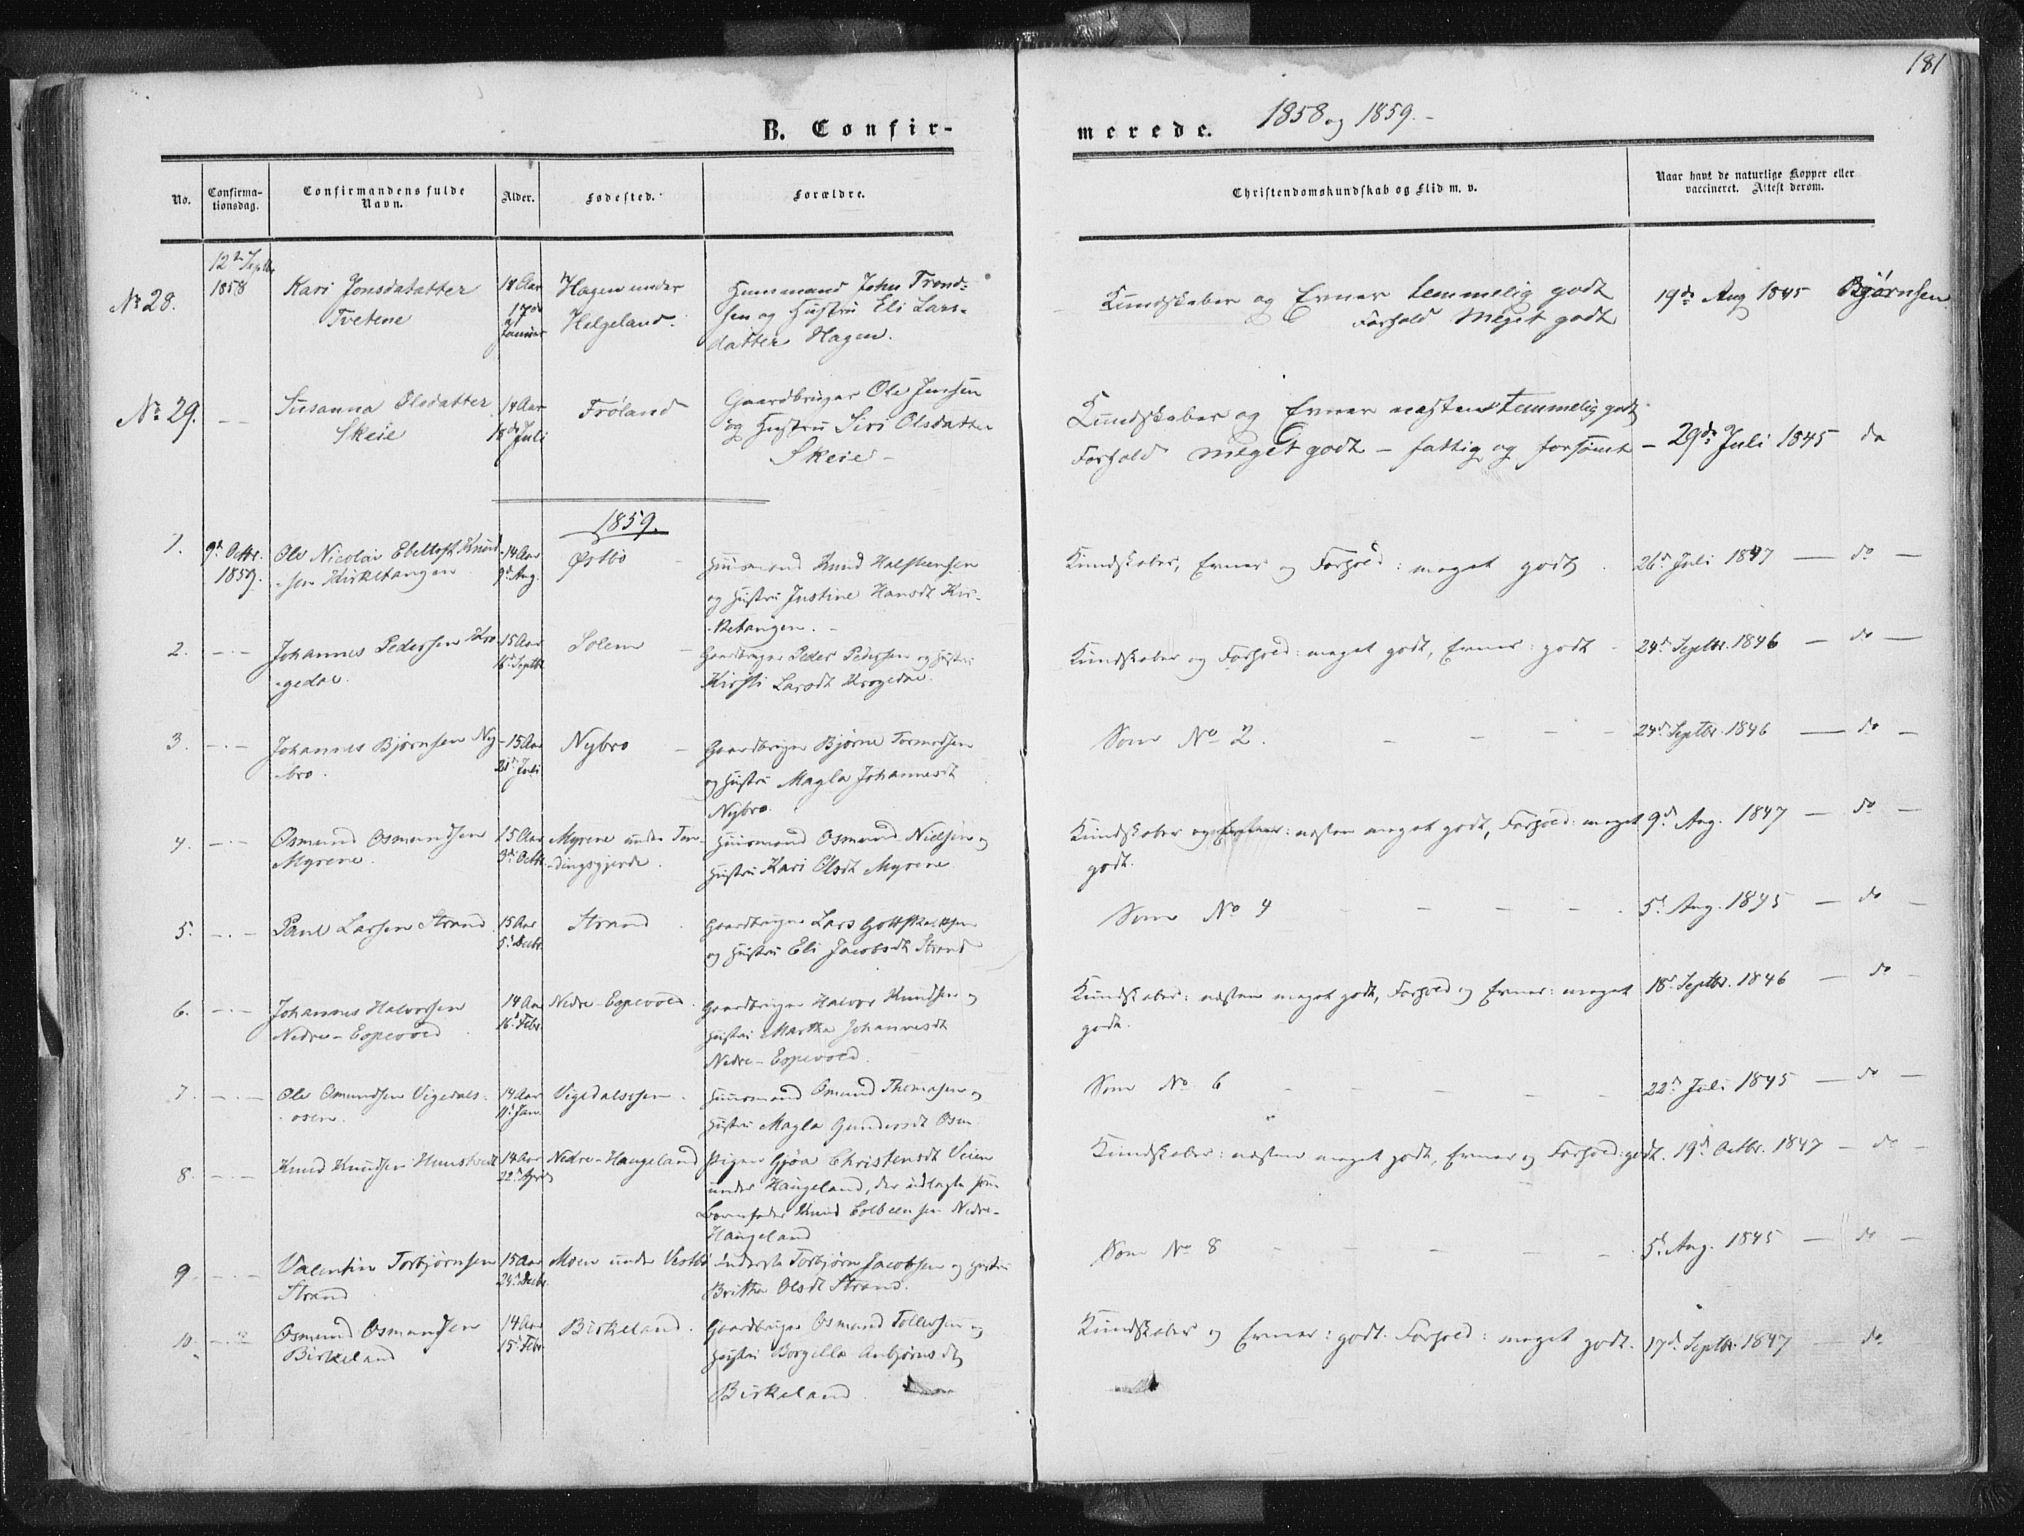 181
B. Confir-
merede. 1858 og 1859.-
No.
Confirma-
tionsdag.
Confirmandens fulde
Navn.
Alder.
Fødested.
Forældre.
Christendomskundskab og Flid m. v.
Naar havt de naturlige Kopper eller
vaccineret. Attest derom.
12te Septbr
1858
No 28.
Kari Jonsdatatter
Tvetene
18 Aar
17de
Januar
Hagen under
Helgeland.
Huusmand John Trond-
sen og Hustru Eli Lars-
datter Hagen.
Kundskaber og Evner temmelig godt
Forhold Meget godt
19de Aug 1845 Bjørnsen
No 29. - -
Susanna Olsdatter
Skeie
14 Aar
18de Juli
Frøland
Gaardbruger Ole Jensen
og Hustru Siri Olsdatter
Skeie -
Kundskaber og Evner næsten temmelig godt
Forhold meget godt - fattig og forsømt -
29de Juli 1845 do
1859.
1.
9d Octbr.
1859.
Ole Nicolai Ebeltoft Knud-
-sen Kirketangen
14 Aar
9d Aug.
Østbø
Huusmand Knud Halfteensen
og Hustru Justine Hansdt Kir-
-ketangen. -
Kundskaber, Evner og Forhold: meget godt.
26d Juli 1847 — do —
2. - . -
Johannes Pedersen Kro-
-gedal.
15 Aar
16d Septbr
Solem
Gaardbruger Peder Pedersen og Hustru
Kirsti Larsdt Krogedal.
Kundskaber og Forhold: meget godt, Evner: godt -
24d Septbr. 1846 — do —
3. - . -
Johannes Bjørnsen Ny-
-bro.
15 Aar
21d Juli
Nybro
Gaardbruger Bjørne Tormodsen
og Hustru Magla Johannesdt
Nybro.
Som No 2. - - - -
24d Septbr. 1846 — do —
4. - . -
Osmund Osmundsen
Myrene.
15 Aar
3d Octbr
Myrene under Ten-
-dingsgjerde.
Huusmand Osmund Nielsen og
Hustru Kari Olsdt Myrene
Kundskaber og Evner: næsten meget godt, Forhold: meget
godt.
9d Aug. 1847 — do —
5. - . -
Paul Larsen Strand
15 Aar
5d Decbr.
Strand
Gaardbruger Lars Gottskalksen
og Hustru Eli Jacobsdt Strand
Som No 4 - - - -
5d Aug. 1845 — do —
6. - . -
Johannes Halvorsen
Nedre-Espevold
14 Aar
16d Febr.
Nedre-Espevold.
Gaardbruger Halvor Knudsen og
Hustru Martha Johannesdt
Nedre-Espevold.
Kundskaber: næsten meget godt, Forhold og Evner: meget
godt.
18d Septbr. 1846 — do —
7. - . -
Ole Omundsen Vigedals-
-osen.
14 Aar
11d Jan.
Vigedalsosen.
Huusmand Omund Thomasen og
Hustru Magla Gundersdt Osen.
Som No 6 - - - -
22d Juli 1845 — do —
8. - . -
Knud Knudsen Hunstvedt
14 Aar
22d April
Nedre-Haugeland
Pigen Gjøa Christensdt Veien
under Haugeland, der udlagte som
Barnefader Knud Colbeensen Nedre-
Haugeland
Kundskaber: næsten meget godt, Evner og Forhold: godt.
19d Octbr. 1847 — do —
9. - . -
Valentin Torbjørnsen
Strand
15 Aar
24d Decbr.
Moen under Vestbø
Inderste Torbjørn Jacobsen og Hustru
Britha Olsdt Strand.
Som No 8 - - - -
5d Aug. 1845 — do —
10. - . -
Osmund Osmundsen
Birkeland
14 Aar
15d Febr.
Birkeland.
Gaardbruger Osmund Tollefsen og
Hustru Borgilla Anbjørnsdt
Birkeland.
Kundskaber og Evner: godt. Forhold: meget godt.
17d Septbr. 1847 — do